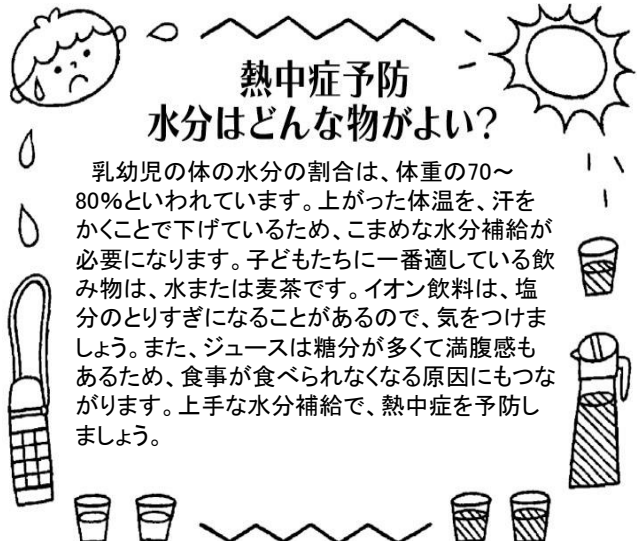 熱中症予防
水分はどんな物がよい?
乳幼児の体の水分の割合は、体重の70～
80%といわれています。上がった体温を、汗を
かくことで下げているため、こまめな水分補給が
必要になります。子どもたちに一番適している飲
み物は、水または麦茶です。イオン飲料は、塩
分のとりすぎになることがあるので、気をつけま
しょう。また、ジュースは糖分が多くて満腹感も
あるため、食事が食べられなくなる原因にもつな
がります。上手な水分補給で、熱中症を予防し
ましょう。